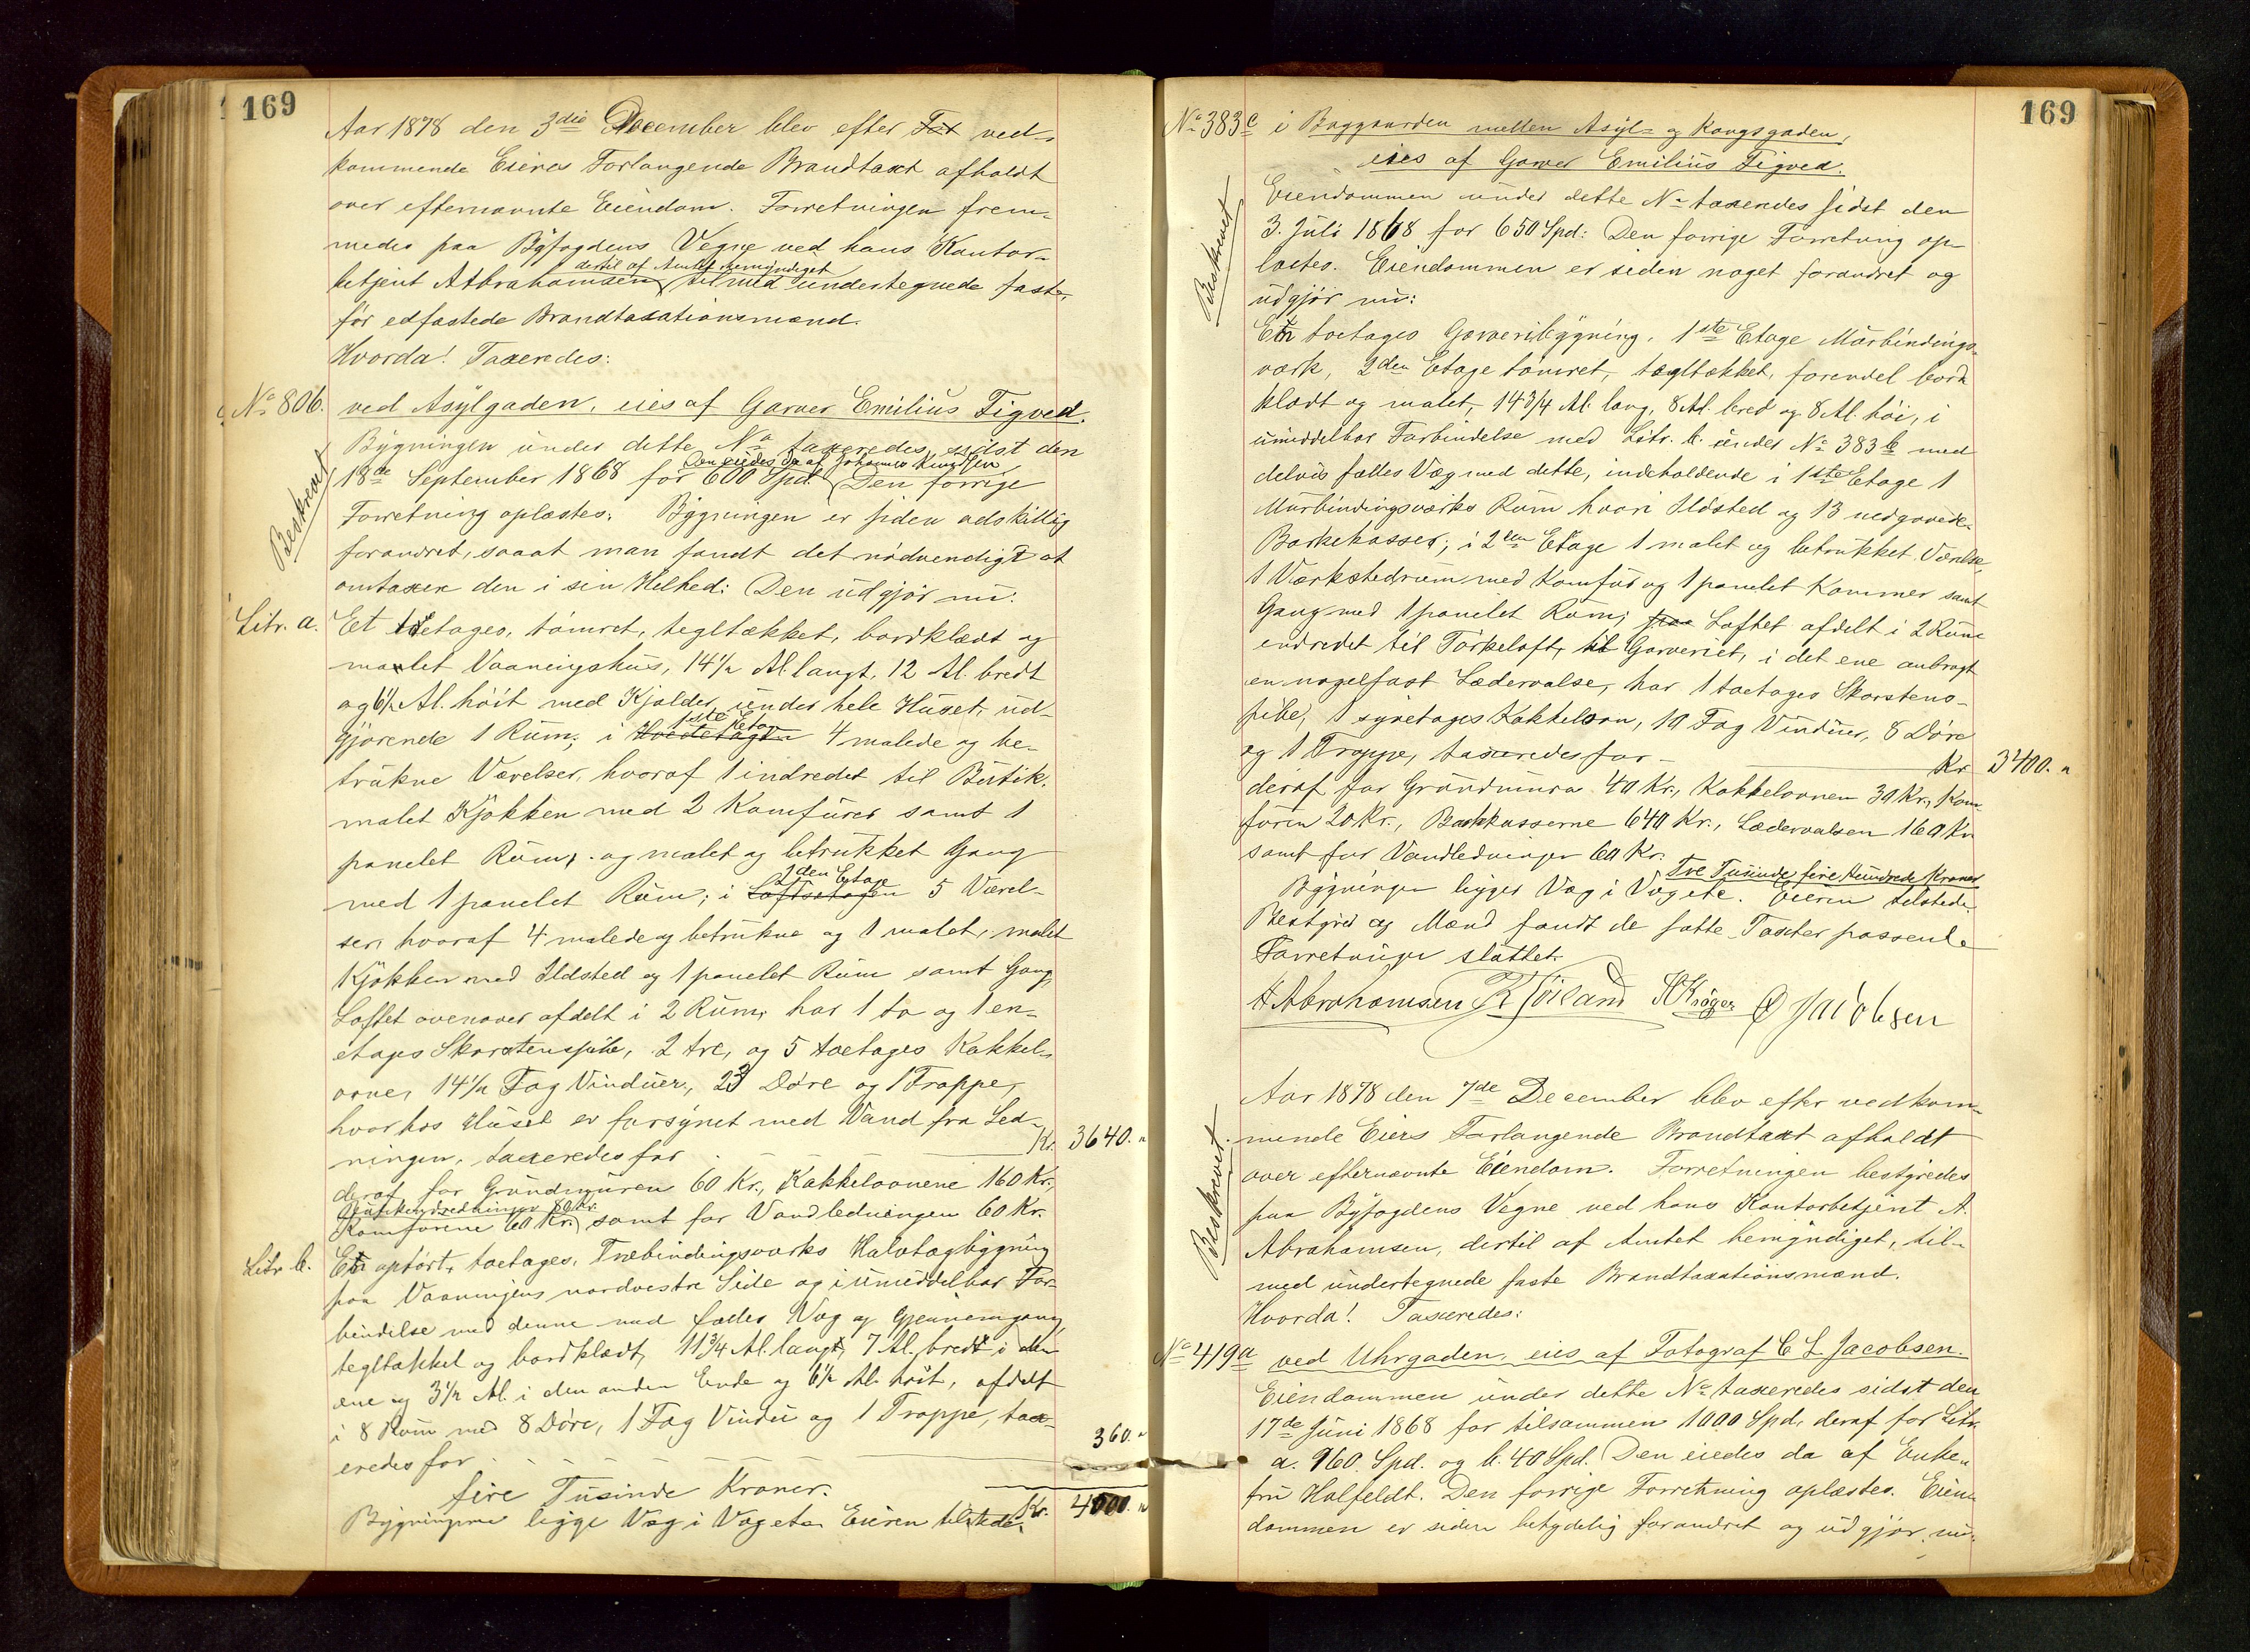 169
Aar 1878 den 3die December blev efter Tax ved-
kommende Eieres Forlangende Brandtaxt afholdt
over efternævnte Eiendom. Forretningen frem-
medes paa Byfogdens Vegne ved hans Kontor-
dertil af Amtet bemyndiget
betjent A Abrahamsen, tilmed undertegnede faste,
før edfæstede Brandtaxationsmænd.
Hvorda! Taxeredes:
No 806. ved Asylgaden, eies af Garver Emilius Figved.
Beskrevet
Bygningen under dette No taxeredes sidst den
Den eiedes da af Johannes
18de September 1868 for 600 Spd. Den forrige
Forretning oplæstes. Bygningen er siden adskillig
forandret, saaat man fandt det nødvendigt at
omtaxere den i sin Helhed: Den udgjør nu:
Litr. a. Et toetages, tømret, tegltækket, bordklædt og
malet Vaaningshus, 14 1/2 Al. langt, 12 Al. bredt
og 6 1/2 Al. høit med Kjælder under hele Huset, ud-
1ste Etage
gjørende 1 Rum; i Hovedetagen 4 malede og be-
trukne Værelser, hvoraf 1 indredet til Butik,
malet Kjøkken med 2 Komfurer samt 1
panelet Rum, og malet og betrukket Gang
2den Etage
med 1 panelet Rum; i Loftsetagen 5 Værel-
ser, hvoraf 4 malede og betrukne og 1 malet, malet
Kjøkken med Ildsted og 1 panelet Rum samt Gang,
Loftet ovenover afdelt i 2 Rum, har 1 to og 1 en-
etages Skorstenspibe, 2 tre, og 5 toetages Kakkel-
ovne, 14 1/2 Fag Vinduer, 23 Døre og 1 Trappe,
hvorhos Huset er forsynet med Vand fra Led-
ningen, taxeredes for Kr. 3640. "
deraf for Grundmuren 60 Kr., Kakkelovnene 160 Kr.,
Butikindredningen 80 Kr.
Komfurene 60 Kr. samt for Vandledningen 60 Kr.
Litr. b. En opført, toetages, Træbindingsværks Halvtagbygning
paa Vaaningens nordvestre Side og i umiddelbar For-
bindelse med denne med fælles Væg og Gjennemgang,
tegltækket og bordklædt, 11 3/4 Al. langt, 7 Al. bredt i den
ene og 3 1/2 Al. i den anden Ende og 6 1/2 Al. høit, afdelt
i 8 Rum med 8 Døre, 1 Fag Vindu og 1 Trappe, tax-
eredes for 360. "
fire Tusinde Kroner. Kr. 4000. "
Bygningerne ligge Væg i Væg etc. Eieren tilstede.
169
No 383c i Baggaarden mellem Asyl- og Kongsgaden,
eies af Garver Emilius Figved.
Beskrevet
Eiendommen under dette No taxeredes sidst den
3. Juli 1868 for 650 Spd: Den forrige Forretning op-
læstes. Eiendommen er siden noget forandret og
udgjør nu:
En toetages Garveribygning, 1ste Etage Murbindings-
værk, 2den Etage tømret, tægltækket, forendel bord-
klædt og malet, 14 3/4 Al. lang, 8 Al. bred og 8 Al. høi, i
umiddelbar Forbindelse med Litr. b. under No 383b med
delvis fælles Væg med dette, indeholdende i 1ste Etage 1
Murbindingsværks Rum hvori Ildsted og 13 nedgravede
Barkekasser; i 2den Etage 1 malet og betrukket Værelse,
1 Værkstedrum med Komfur og 1 panelet Kammer samt
Gang med 1 panelet Rum; paa Loftet afdelt i 2 Rum
indredet til Tørkeloft, til Garveriet, i det ene anbragt
en nagelfast Lædervalse, har 1 toetages Skorstens-
pibe, 1 syvetages Kakkelovn, 10 Fag Vinduer, 8 Døre
og 1 Trappe, taxeredes for Kr. 3400. "
deraf for Grundmuren 40 Kr., Kakkelovnen 30 Kr., Kom-
furen 20 Kr., Barkkasserne 640 Kr., Lædervalsen 160 Kr.
samt for Vandledningen 60 Kr.
Tre Tusinde fire Hundrede Kroner
Bygningen ligger Væg i Væg etc. Eieren tilstede.
Bestyrer og Mænd fandt de satte Taxter passende
Forretningen sluttet.
A Abrahamsen R Törland Jacobsen
Beskrevet.
Aar 1878 den 7de December blev efter vedkom-
mende Eiers Forlangende Brandtaxt afholdt
over efternævnte Eiendom. Forretningen bestyredes
paa Byfogdens Vegne ved hans Kontorbetjent A.
Abrahamsen, dertil af Amtet bemyndiget, til-
med undertegnede faste Brandtaxationsmænd.
Hvorda! Taxeredes:
No 419a ved Uhrgaden, eies af Fotograf C L Jacobsen.
Eiendommen under dette No taxeredes sidst den
17de Juni 1868 for tilsammen 1000 Spd, deraf for Litr.
a. 960. Spd. og b. 40 Spd. Den eiedes da af Enke-
fru Halfeldt. Den forrige Forretning oplæstes. Eien-
dommen er siden betydelig forandret og udgjør nu: